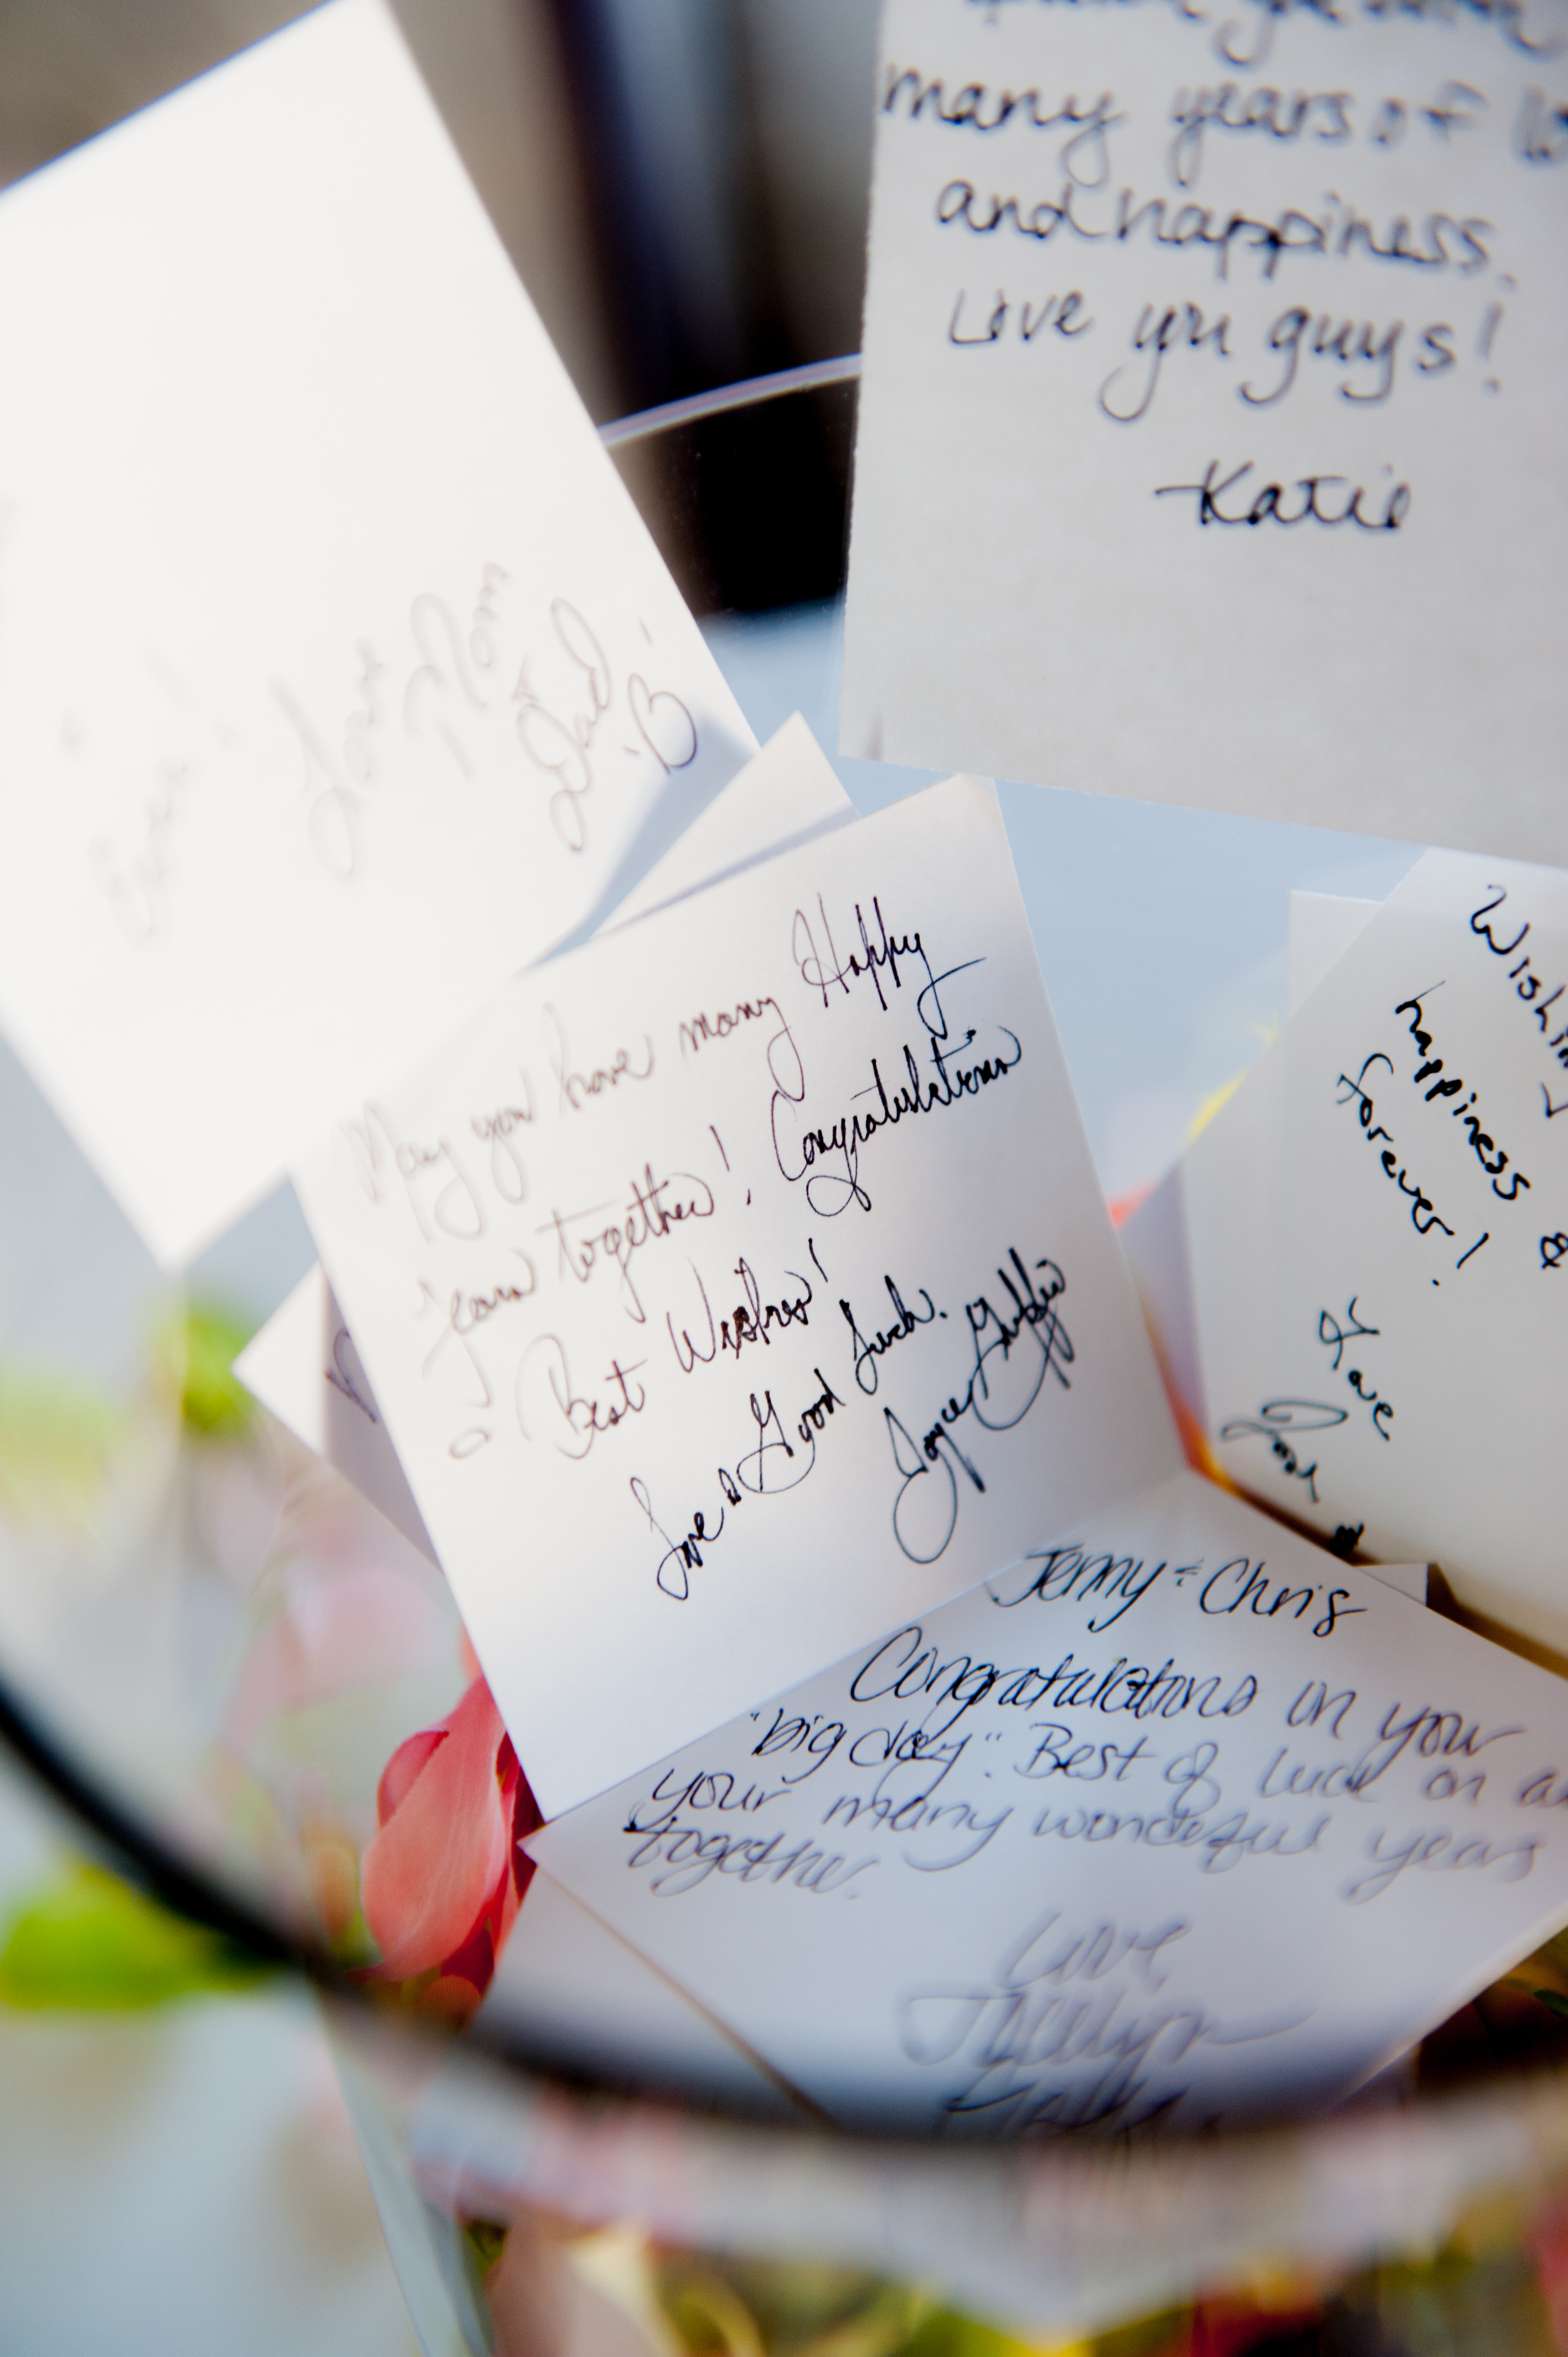 many years of
and happiness.
Love you guys!
-Katie
Love
Mom
Dad
"B"
May you have many Happy
Years together! Congratulations
& Best Wishes!
Love & Good Luck.
Joyce
happiness &
Forever!
Love
Jenny & Chris
Congratulations on your
"big day". Best of luck on
your many wonderful years
together.
Love,